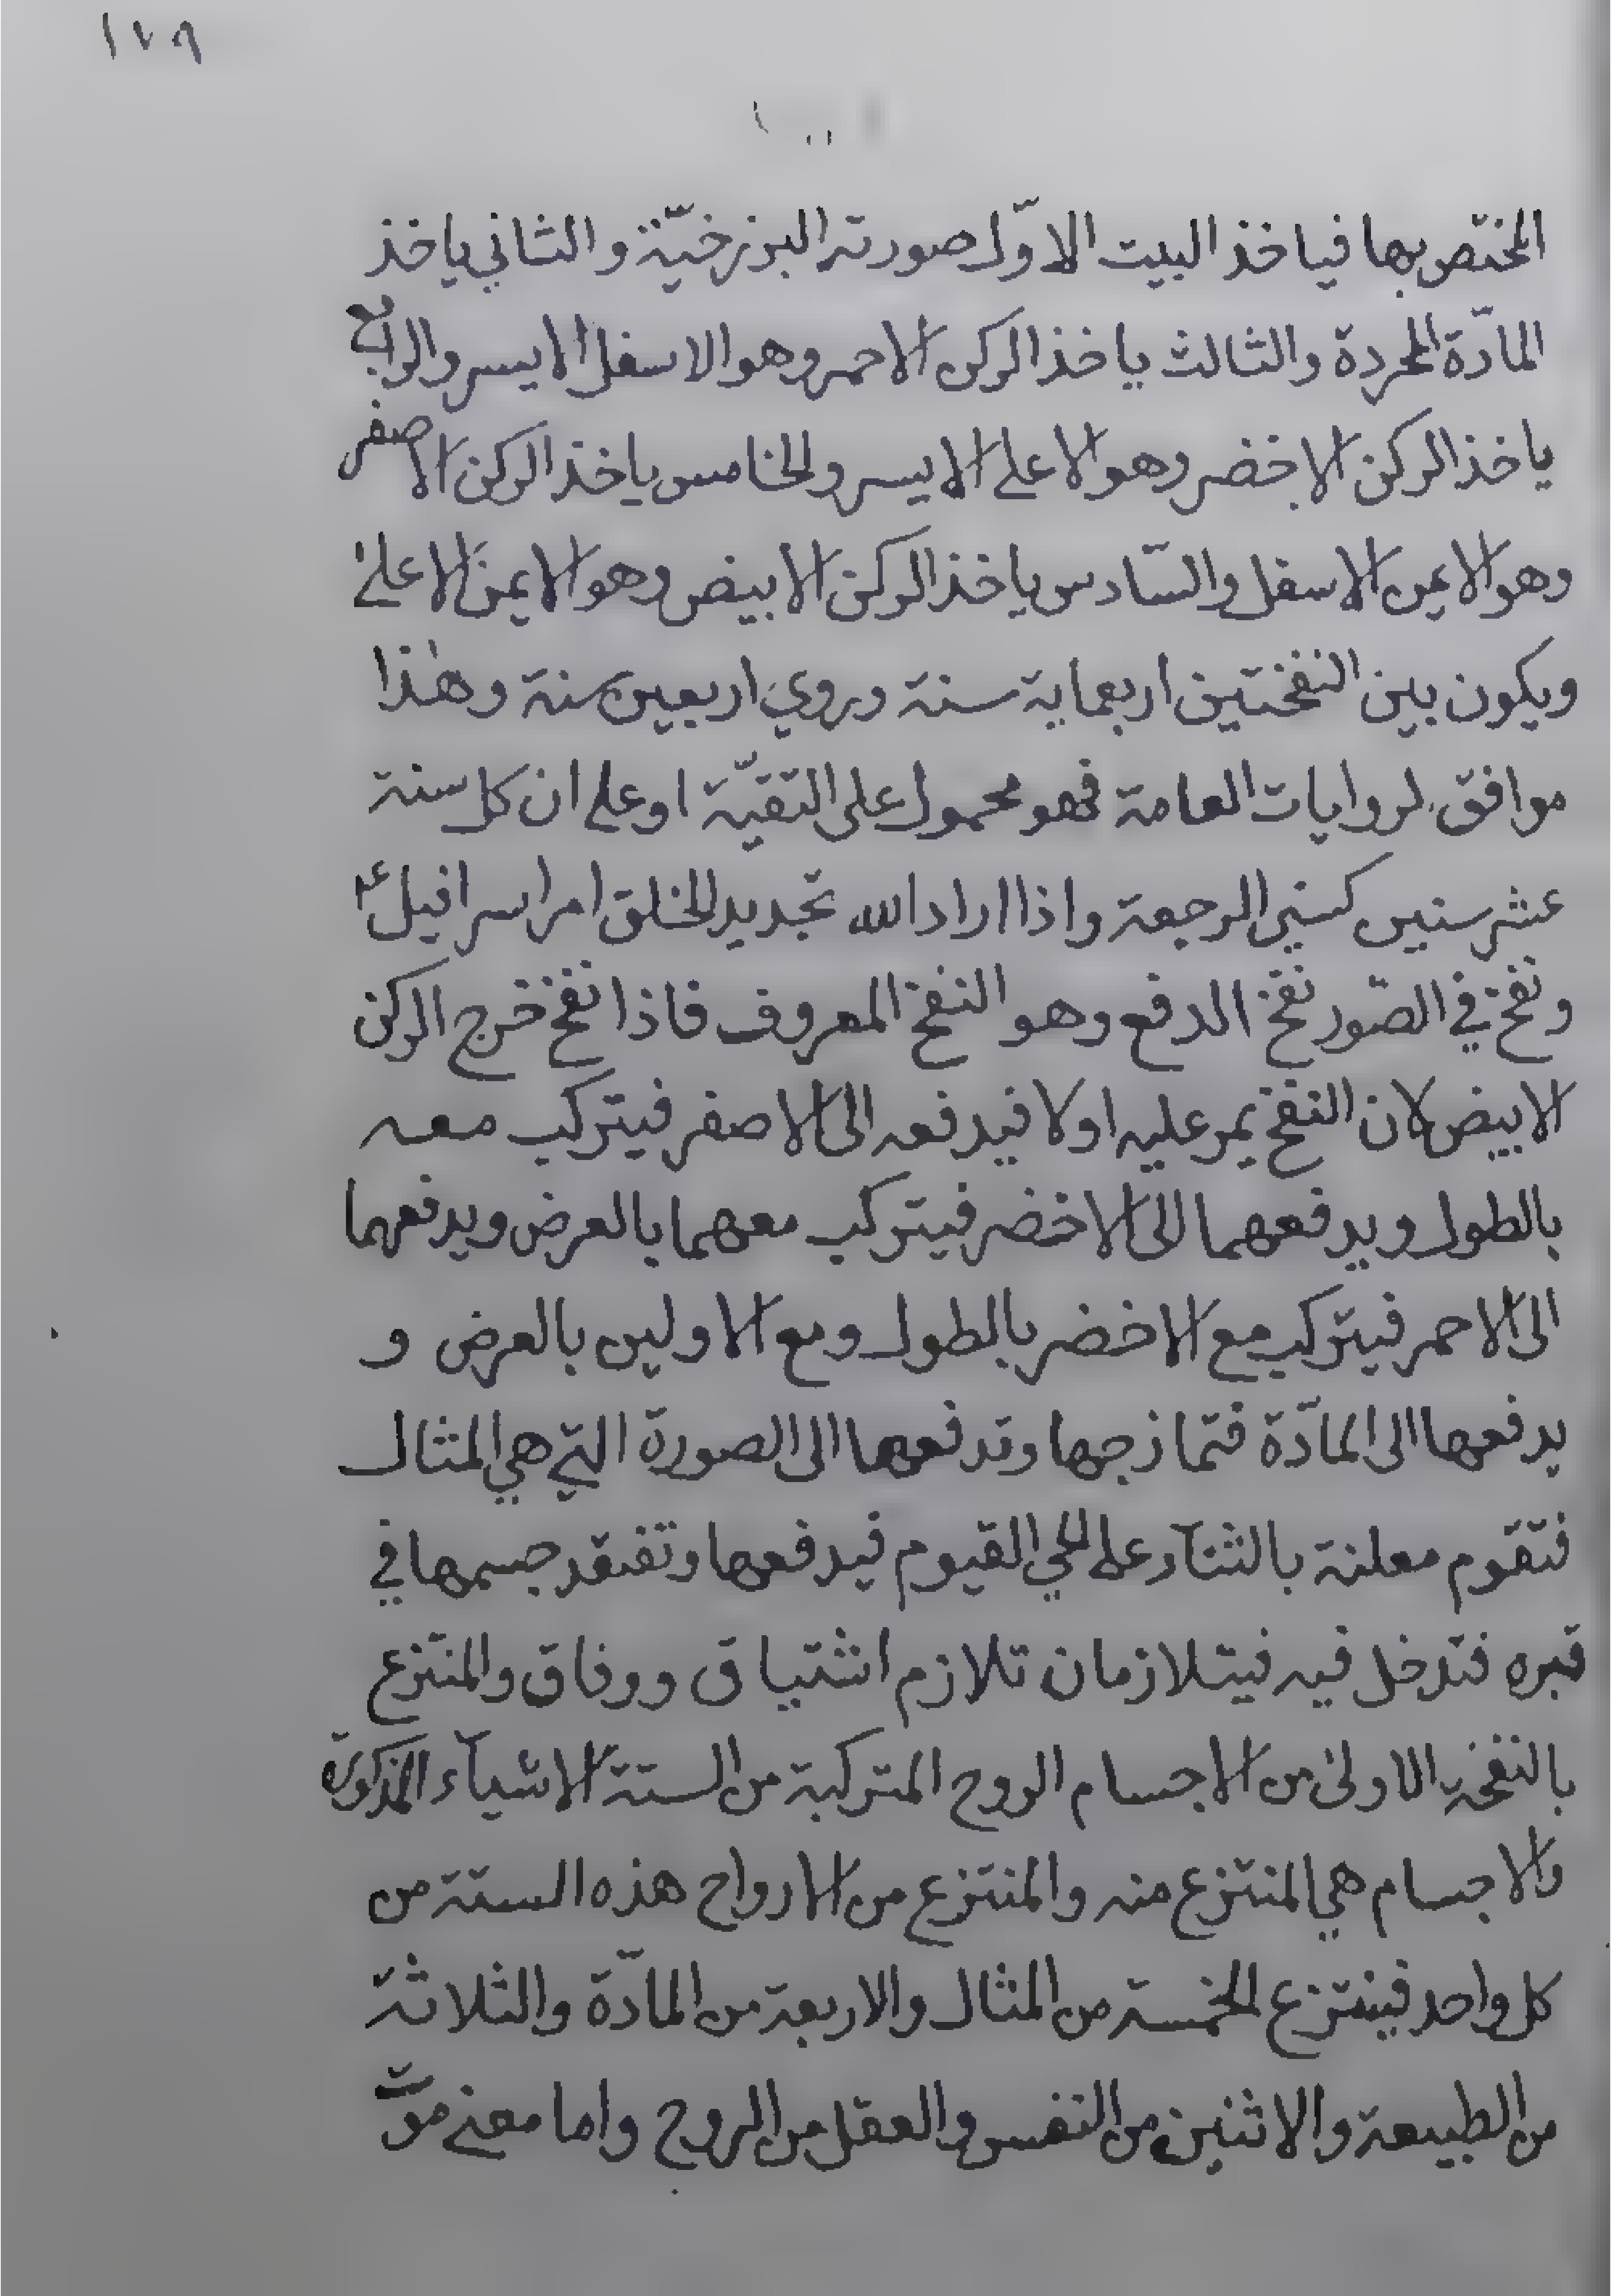 ١٧٩
المختص بها فياخذ البيت الاوّل صورته البرزخيّة والثاني ياخذ
المادّة المجردة والثالث ياخذ الركن الاحمر وهو الاسفل الايسر والرابع
ياخذ الركن الاخضر وهو الاعلى الايسر والخامس ياخذ الركن الاصفر
وهو الايمن الاسفل والسّادس ياخذ الركن الابيض وهو الايمن الاعلى
ويكون بين النفختين اربعماية سنة وروي اربعين سنة وهٰذا
موافق لروايات العامة فهو محمول على التقيّة او على ان كل سنة
عشر سنين كسني الرجعة واذا اراد الله تجديد الخلق امر اسرافيل ع
ونفخ في الصّور نفخ الدفع وهو النفخ المعروف فاذا نفخ خرج الركن
الابيض لان النفخ يمر عليه اولا فيدفعه الى الاصفر فيتركب معه
بالطول ويدفعهما الى الاخضر فيتركب معهما بالعرض ويدفعهما
الى الاحمر فيتركب مع الاخضر بالطول ومع الاولين بالعرض و
يدفعها الى المادّة فتمازجها وتدفعها الى الصورة التي هي المثال
فتقوم معلنة بالثنآء على الحي القيوم فيدفعها وتفتقد جسمها في
قبره فتدخل فيه فيتلازمان تلازم اشتياق ووفاق والمنتزع
بالنفخة الاولى من الاجسام الروح المتركبة من الستة الاشيآء المذكورة
والاجسام هي المنتزع منه والمنتزع من الارواح هذه الستة من
كل واحد فينتزع الخمسة من المثال والاربعة من المادّة والثلاثة
من الطبيعة والاثنين من النفس والعقل من الروح واما معنى موت